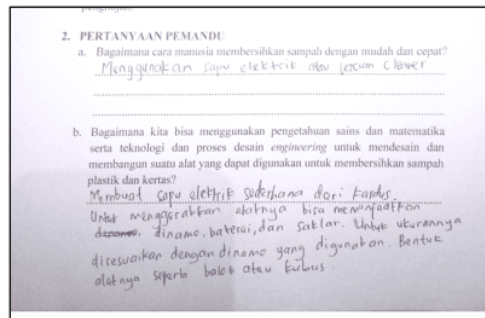 2. PERTANYAAN PEMANDU
a. Bagaimana cara manusia membersihkan sampah dengan mudah dan cepat?
Menggunakan sapu elektrik atau
b. Bagaimana kita bisa menggunakan pengetahuan sains dan matematika
serta teknologi dan proses desain engineering untuk mendesain dan
membangun suatu alat yang dapat digunakan untuk membersihkan sampah
plastik dan kertas?
Membuat sapu elektrik sederhana dari kardus.
Untuk menggerakkan alatnya bisa memanfaatkan
dinamo, baterai, dan saklar. Untuk ukurannya
disesuaikan dengan dinamo yang digunakan. Bentuk
alatnya seperti balok atau kubus.